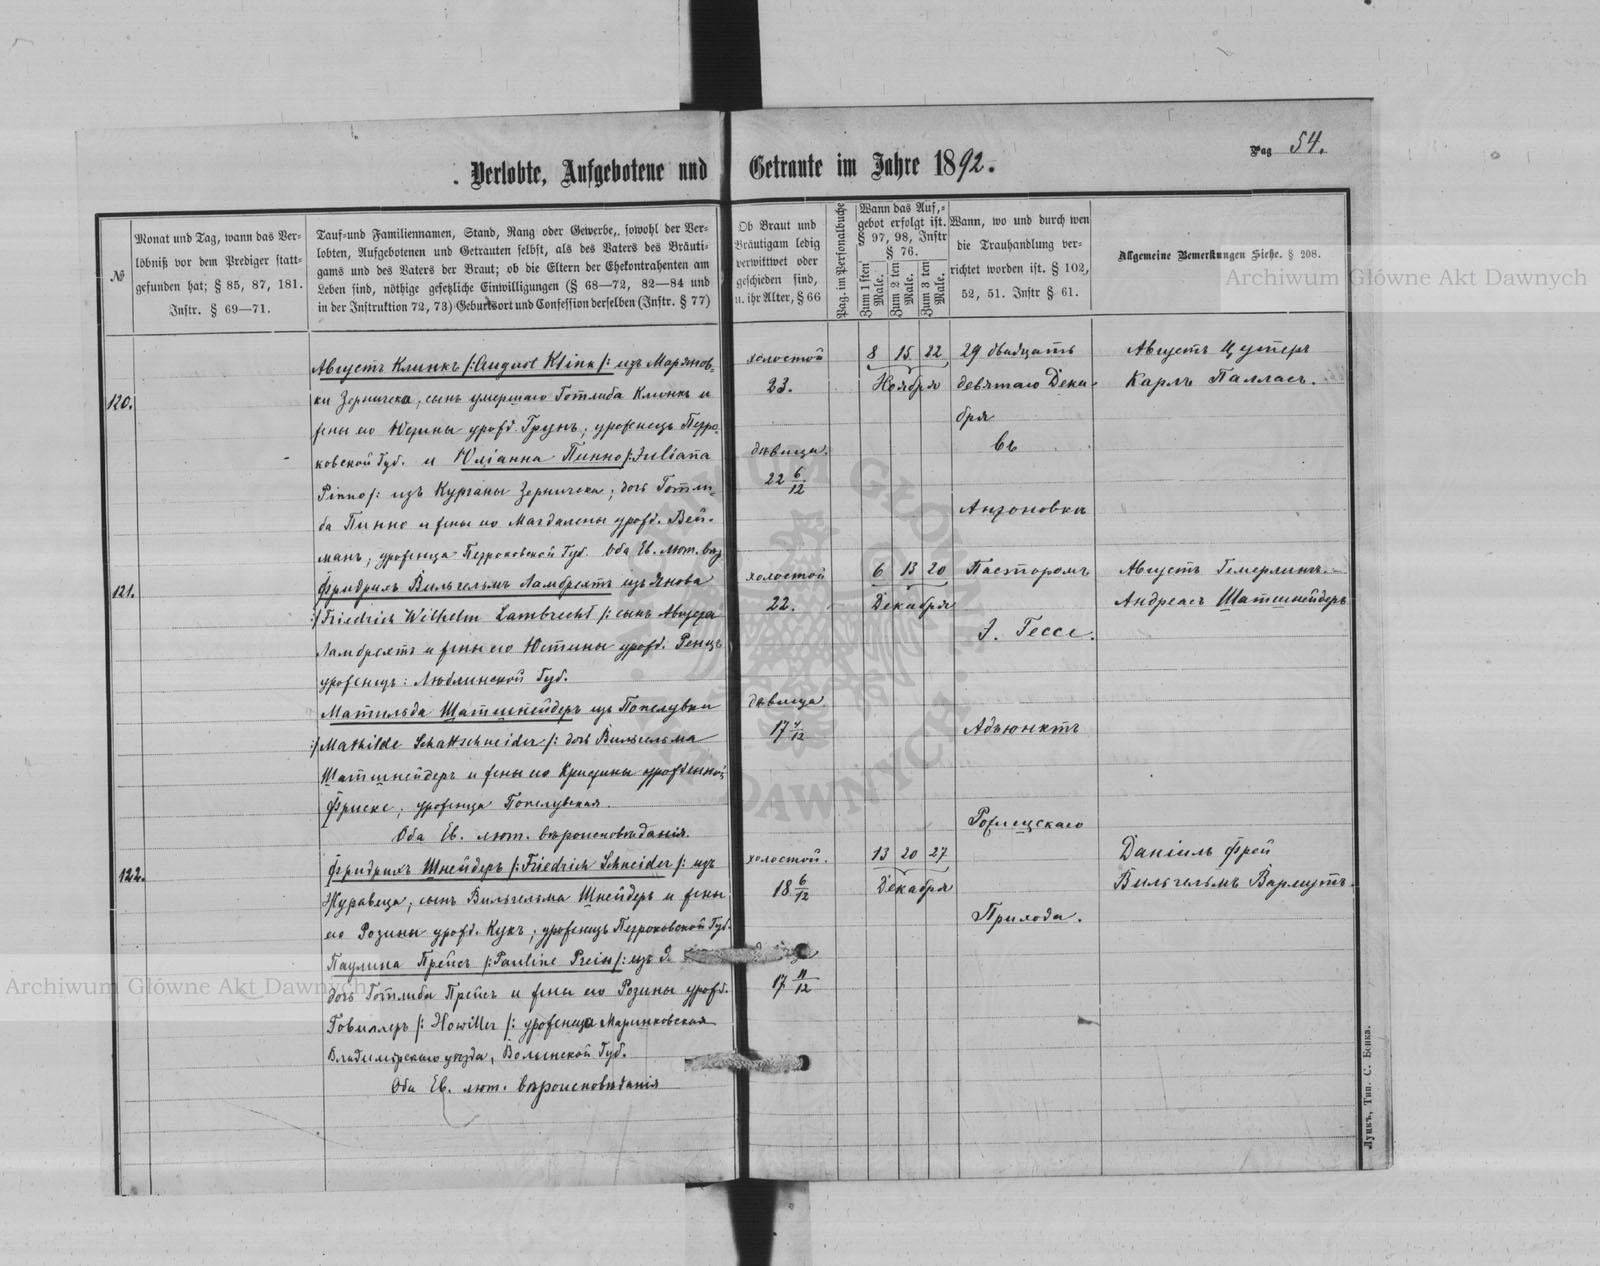 Verlobte, Aufgebotene und Getraute im Jahre 1892.
Pag 54.
№
Monat und Tag, wann das Ver-
löbniß vor dem Prediger statt-
gefunden hat; § 85, 87, 181.
Instr. § 69—71.
Tauf-und Familiennamen, Stand, Rang oder Gewerbe, sowohl der Ver-
lobten, Aufgebotenen und Getrauten selbst, als des Vaters des Bräuti-
gams und des Vaters der Braut; ob die Eltern der Ehekontrahenten am
Leben sind, nöthige gesetzliche Einwilligungen (§ 68—72, 82—84 und
in der Instruktion 72, 73) Geburtsort und Confession derselben (Instr. § 77)
Ob Braut und
Bräutigam ledig
verwittwet oder
geschieden sind,
u. ihr Alter, § 66
Pag. im Personalbuche
Wann das Auf,-
gebot erfolgt ist.
§ 97, 98, Instr
§ 76.
Zum 1 sten Male.
Zum 2 ten Male.
Zum 3 ten Male.
Wann, wo und durch wen
die Trauhandlung ver-
richtet worden ist. § 102,
52, 51. Instr § 61.
Allgemeine Bemerkungen Siehe. § 208.
120.
Августъ Клинкъ /: August Klink :/ изъ Марянов-
ки Зерничека, сынъ умершаго Готлиба Клинкъ и
жены его Юстины урожд. Грунъ; уроженецъ Петро-
ковской Губ. и Юліанна Пинно /: Juliana
Pinno /: изъ Курганы Зерничека; дочь Готли-
ба Пинно и жены его Магдалены урожд. Вей-
манъ; уроженца Петроковской Губ. Оба Ев. лют. вѣр
холостой
23.
дѣвица.
22 6/12
8 15 22
Ноября
29 двадцать
девятаго Дека-
бря
въ
Антоновки
Августъ Цутеръ
Карлъ Палласъ.
121.
Фридрихъ Вильгельмъ Ламбрехтъ изъ Янова
:/ Friedrich Wilhelm Lambrecht /: сынъ Августа
Ламбрехтъ и жены его Юстины урожд. Ренцъ
уроженецъ: Люблинской Губ.
Матильда Шатшнейдеръ изъ Попелувки
:/ Mathilde Schattschneider /: дочь Вильгельма
Шатшнейдеръ и жены его Кристины урожденной
Фриске, уроженца Попелувская.
Оба Ев. лют. вѣроисповѣданія.
холостой
22.
дѣвица
6 13 20
Декабря
Пасторомъ
Э. Гессе.
Адъюнктъ
Рожищскаго
Прихода.
Августъ Гемерлингъ.
Андреасъ Шатшнейдеръ
122.
Фридрихъ Шнейдеръ /: Friedrich Schneider /: изъ
Журавеца, сынъ Вильгельма Шнейдеръ и жены
его Розины урожд. Кукъ; уроженецъ Петроковской Губ.
Паулина Прейсъ /: Pauline Preiss /: изъ
дочь Готлиба Прейсъ и жены его Розины урожд.
Говиллеръ /: Howiller /: уроженца Маринковская
Владимірскаго уѣзда, Волынской Губ.
Оба Ев. лют. вѣроисповѣданія
холостой.
18 6/12
17 11/12
13 20 27
Декабря
Даніилъ Фрей
Вильгельмъ Вармутъ.
Луцкъ, Тип. С. Бенка.
Archiwum Główne Akt Dawnych
Archiwum Główne Akt Dawnych